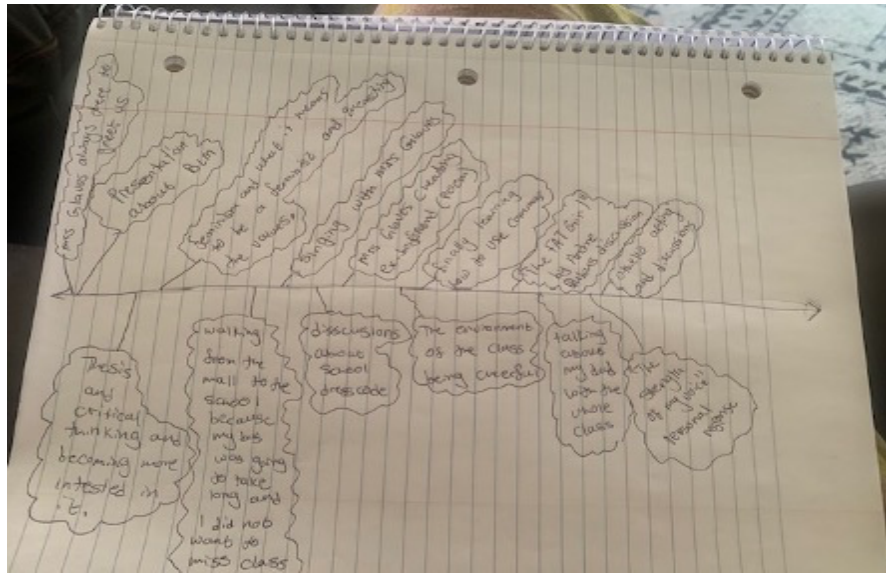 mrs Glaves always there to
greet us
Presentation
about BLM
feminism and what it means
to be a feminist and
the values.
Singing with mrs Glaves
mrs Glaves reading
Ex-
(Poem)
finally learning
how to use commas
"The FAT Girl"
by Andre
Dubus discussion
othello acting
and discussions
Thesis
and
critical
thinking and
becoming more
intested in
it.
walking
from the
mall to the
school
because
my bus
was going
to take
long and
I did not
want to
miss class
disscusions
about
school
dresscode
The environment
of the class
being cheerful
talking
about
my dad
with the
whole
class
"The
strength
of my voice"
personal
response